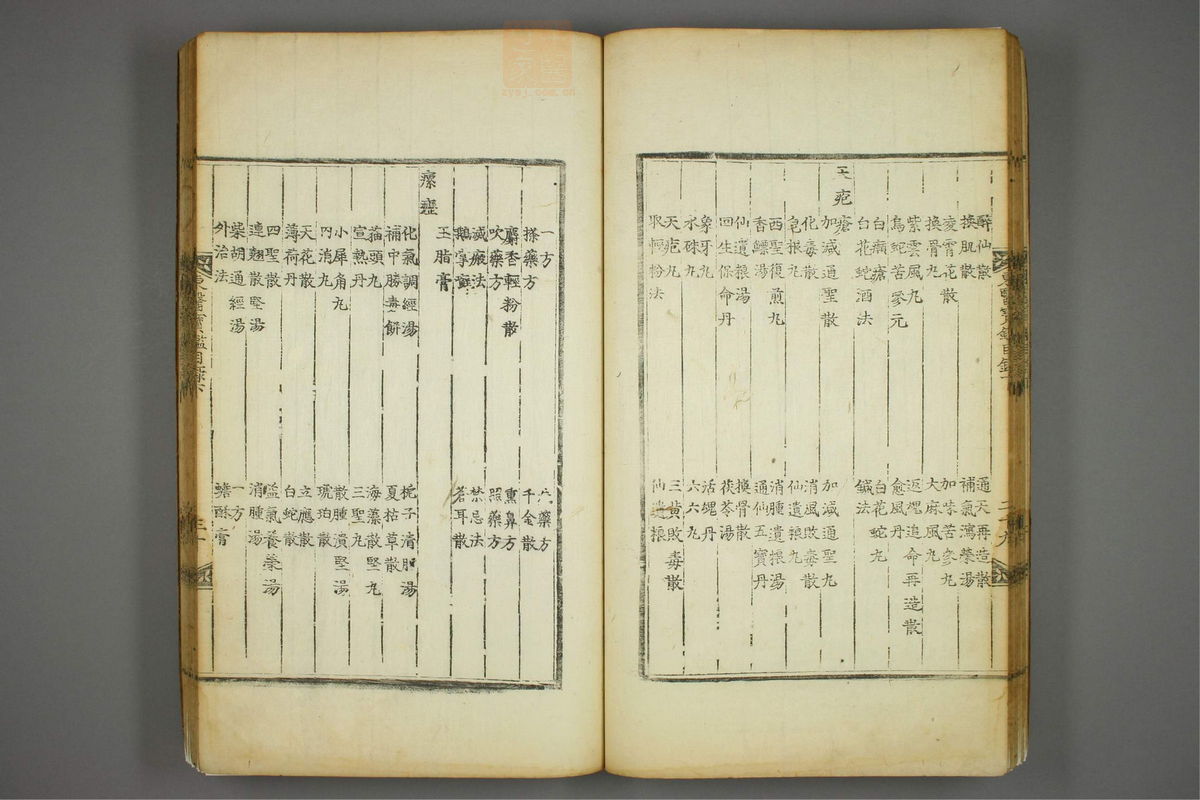 醉仙散
通天再造散
換肌散
補氣瀉榮湯
凌霄花散
加味苦參丸
換骨丸
大麻風丸
紫雲風丸
返魂追命再造散
烏蛇苦參元
愈風丹
白癩瘡
白花蛇丸
白花蛇酒法
鍼法
天疱瘡
加減通聖散
加減通聖丸
化毒散
消風敗毒散
皂根丸
仙遺粮丸
西聖復煎丸
消腫遺根湯
香鰾湯
通仙五寶丹
仙遺粮湯
換骨散
回生保命丹
茯苓湯
象牙丸
活䰟丹
水硃丸
六六丸
天疱丸
三黃敗毒散
取輕粉法
仙遺粮
東醫寶鑑目錄下
三十九
一方
搽藥方
千金散
麝香輕粉散
熏鼻方
吹藥方
照藥方
滅瘢法
禁忌法
蒼耳散
玉脂膏
瘰癧
化氣調經湯
梔子清肝湯
補中勝毒餅
夏枯草散
猫頭丸
海藻散堅丸
宣熱丹
三聖丸
小犀角丸
散腫潰堅湯
內消丸
琥珀散
天花散
立應散
薄荷丹
白蛇散
四聖散
益氣養榮湯
連翹散堅湯
消腫湯
柴胡通經湯
一方
外治法
蟾酥膏
東醫寶鑑目錄下